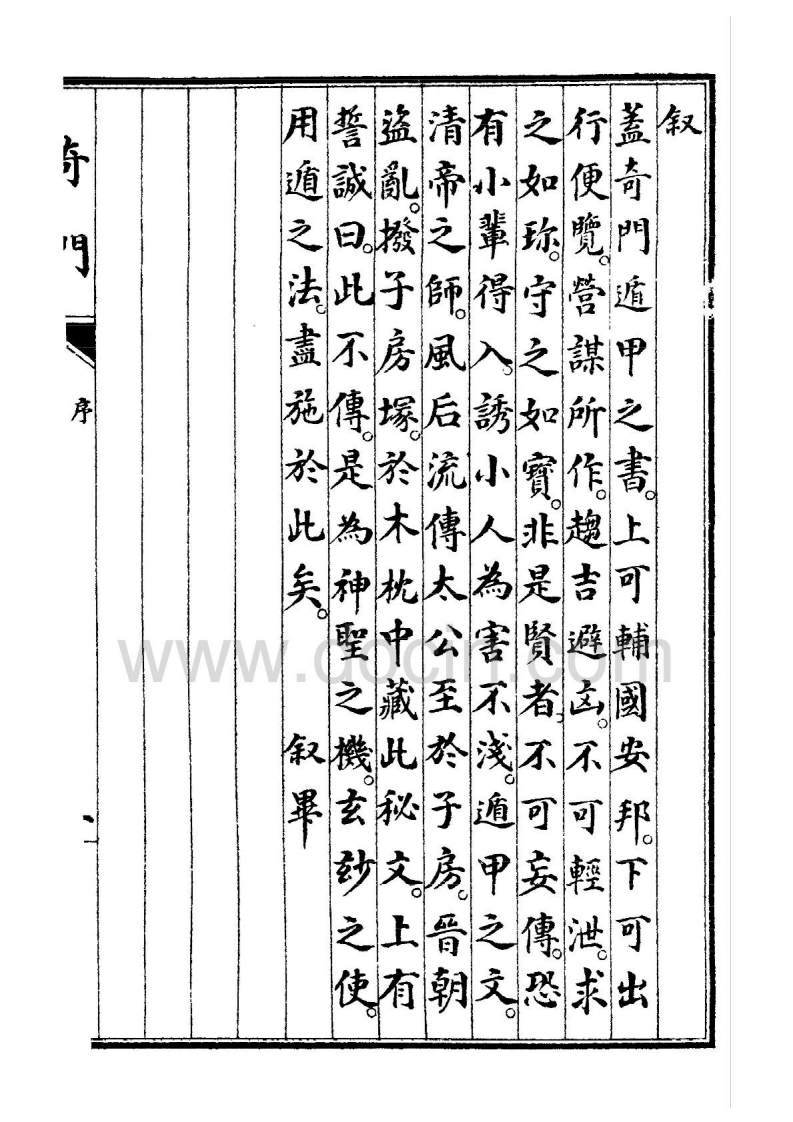 叙
蓋奇門遁甲之書。上可輔國安邦。下可出
行便覽。營謀所作。趨吉避凶。不可輕泄。求
之如珎。守之如寳。非是賢者。不可妄傳。恐
有小輩得入。誘小人為害不淺。遁甲之文。
清帝之師。風后流傳太公至於子房。晉朝
盜亂。撥子房塚。於木枕中藏此秘文。上有
誓誠曰。此不傳。是為神聖之機。玄玅之使。
用遁之法。盡施於此矣。 叙畢
奇門 序
www.docin.com